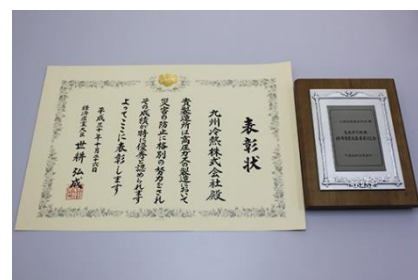 表彰状
九州冷熱株式会社殿
貴製造所は高圧ガスの製造において
災害の防止に格別の努力をされ
その成績が特に優秀と認められます
よってここに表彰します
平成三十年十月二十六日
経済産業大臣 世耕弘成